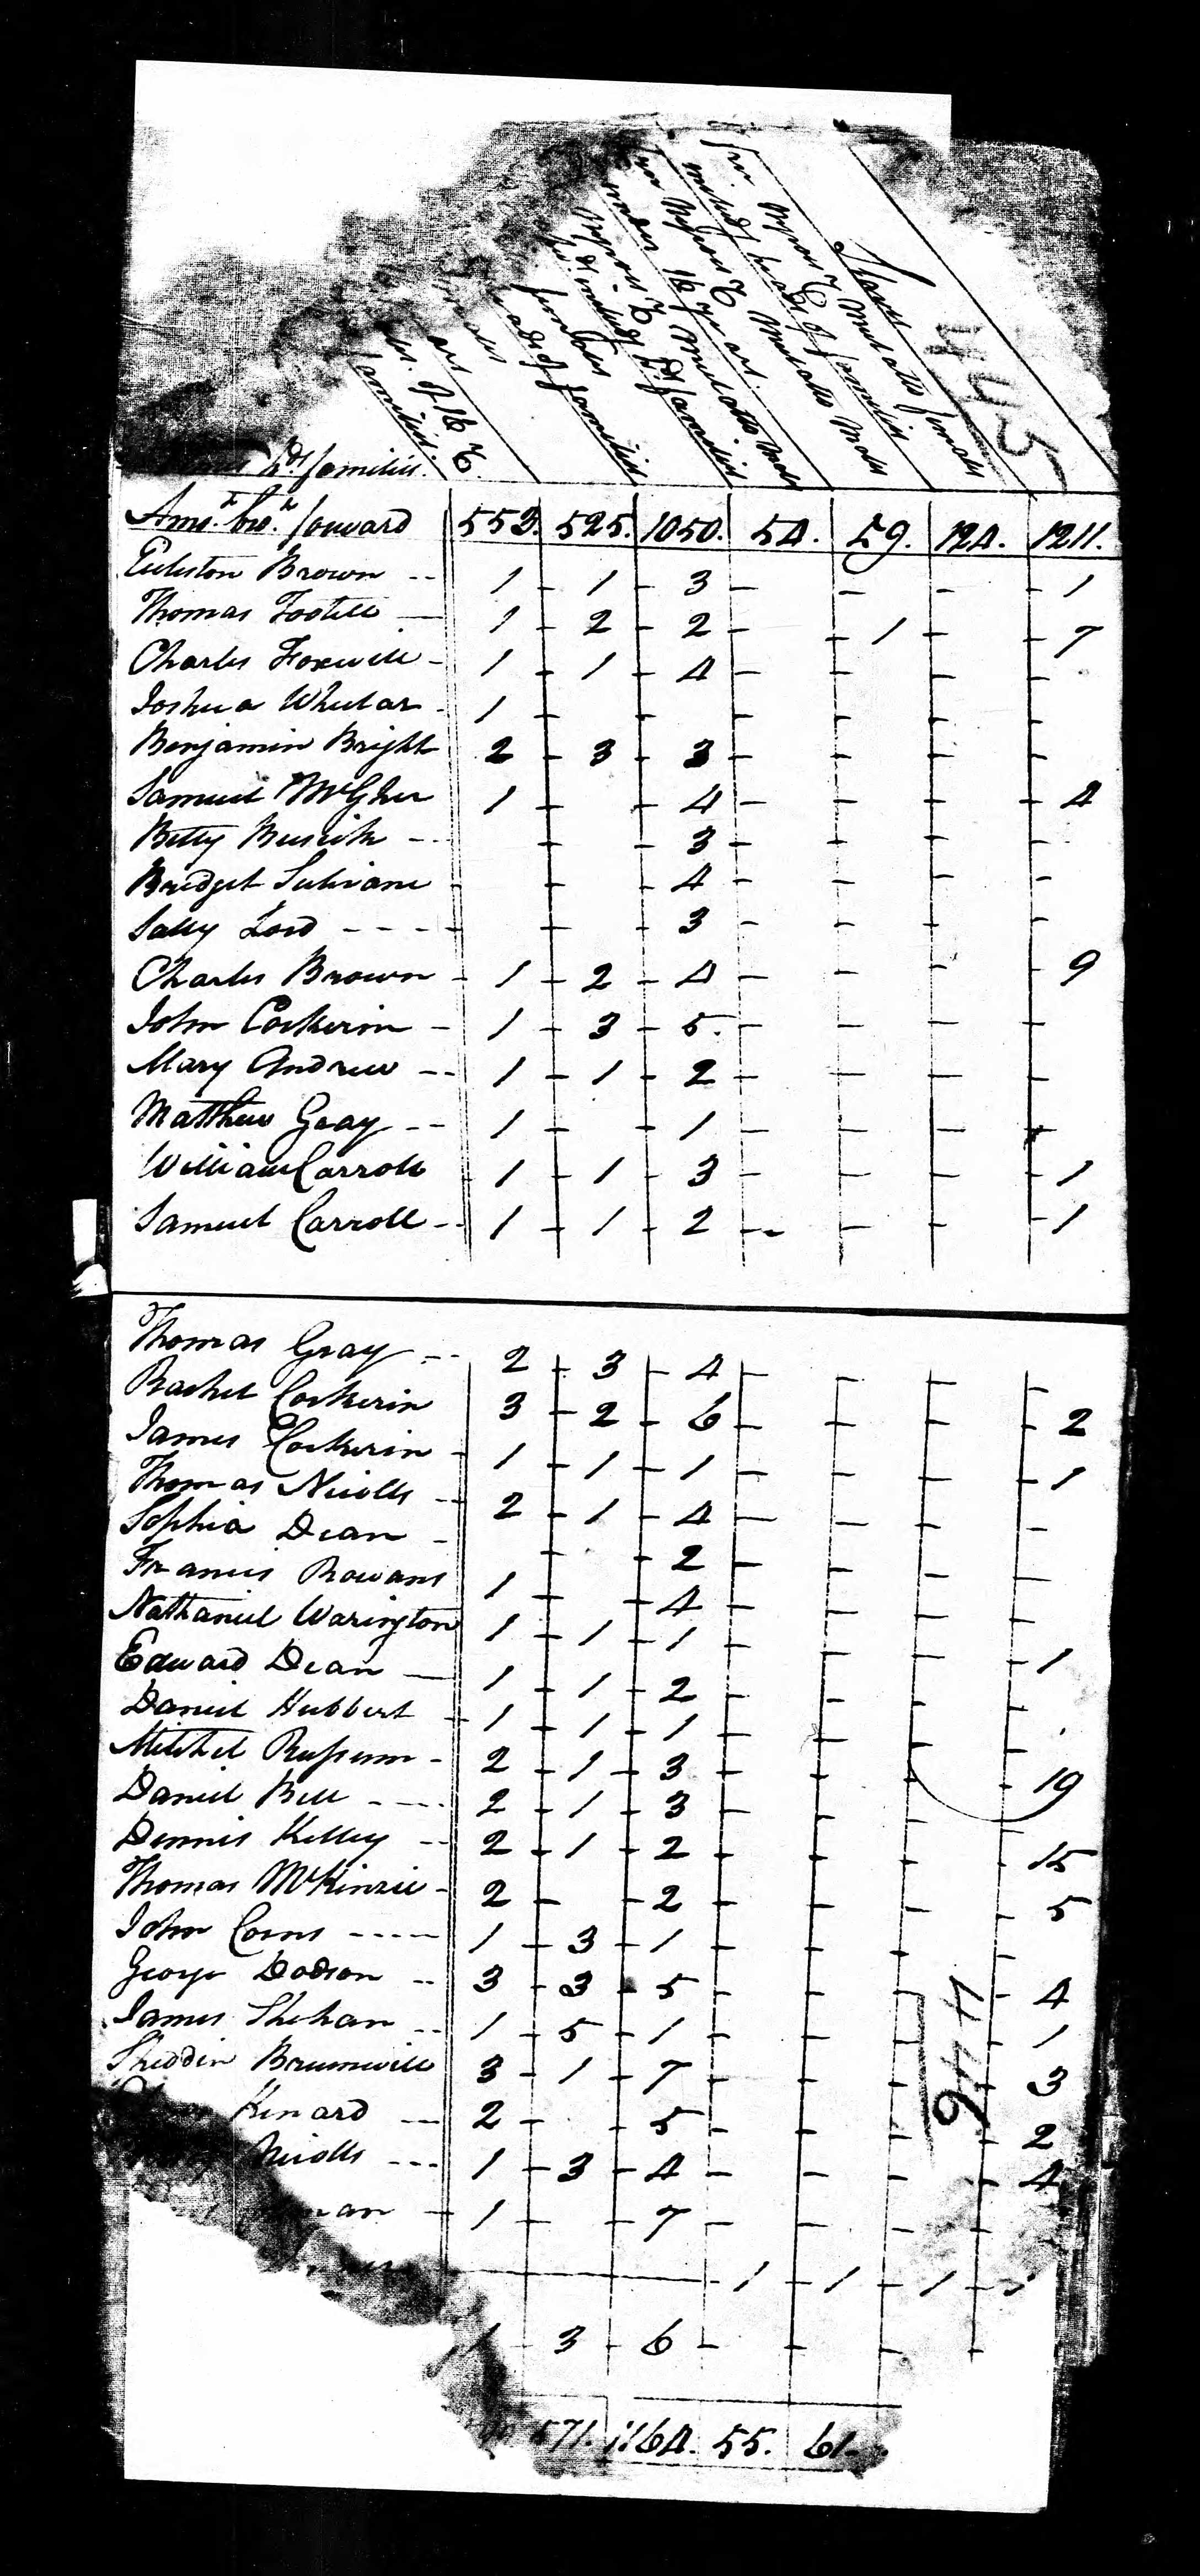 Slaves
free Negroes & Mulatto females
includ.g heads of families
free Negroes & Mulatto Males
under 16 years.
free Negroes & Mulatto Males
Negroes & includ.g h.ds families
females
heads of families
of 16 &
families.
h.ds families.
445
Amo.t bro.t forward 553. 525. 1050. 54. 59. 124. 1211.
Eccleston Brown -- 1 - 1 - 3 - - - - 1
Thomas Footell — 1 - 2 - 2 - - 1 - - 7
Charles Foxwell - 1 - 1 - 4 - - - -
Joshua Whelar - 1 - - - - - -
Benjamin Bright 2 - 3 - 3 - - - -
Samuel McGher 1 - - 4 - - - - 4
Betty - - 3 - - - -
Bridget Sulivane - - - 4 - - - -
Sally Lord - - - - - - 3 - - - -
Charles Brown - 1 - 2 - 4 - - - - 9
John Cockerin - 1 - 3 - 5. - - - -
Mary Andrew -- 1 - 1 - 2 - - - -
Matthew Gray -- 1 - - 1 - - - -
William Carroll 1 - 1 - 3 - - - - 1
Samuel Carroll -- 1 - 1 - 2 - - - - 1
Thomas Gray -- 2 - 3 - 4 - - - -
Rachel Cockerin 3 - 2 - 6 - - - - 2
James Cockerin - 1 - 1 - 1 - - - - 1
Thomas Nicolls -- 2 - 1 - 4 - - - -
Sophia Dean - - - 2 - - - -
Francis Rowans 1 - - 4 - - - -
Nathaniel Warington 1 - 1 - 1 - - - - 1
Edward Dean — 1 - 1 - 2 - - - -
Daniel Hubbert - 1 - 1 - 1 - - - -
Mitchel Russum - 2 - 1 - 3 - - - - 19
Daniel Bell ---- 2 - 1 - 3 - - - -
Dennis Kelley -- 2 - 1 - 2 - - - - 15
Thomas McKinzie - 2 - - 2 - - - - 5
John Corns ---- 1 - 3 - 1 - - - -
George Dodson -- 3 - 3 - 5 - - - - 4
James Shehan -- 1 - 5 - 1 - - - - 1
Sheddin Brumwell 3 - 1 - 7 - - - - 3
Kinard -- 2 - - 5 - - - - 2
Nicolls --- 1 - 3 - 4 - - - - 4
446
man - 1 - - 7 - - - -
1 - 1 - 1 -
1 - 3 - 6 - - - -
571. 1164. 55. 61.